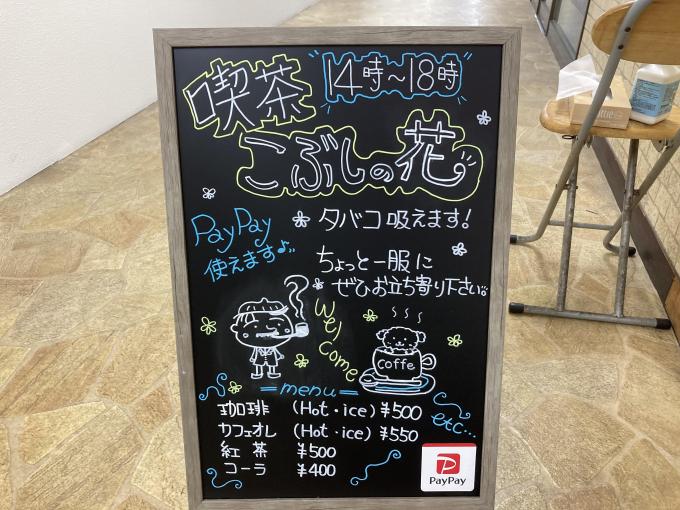 喫茶 14時〜18時
こぶしの花
PayPay
使えます♪
タバコ吸えます!
ちょっと一服に
ぜひお立ち寄り下さい。
Welcome
coffe
=menu=
珈琲 (Hot・ice) ¥500
カフェオレ (Hot・ice) ¥550
紅茶 ¥500
コーラ ¥400
etc...
PayPay